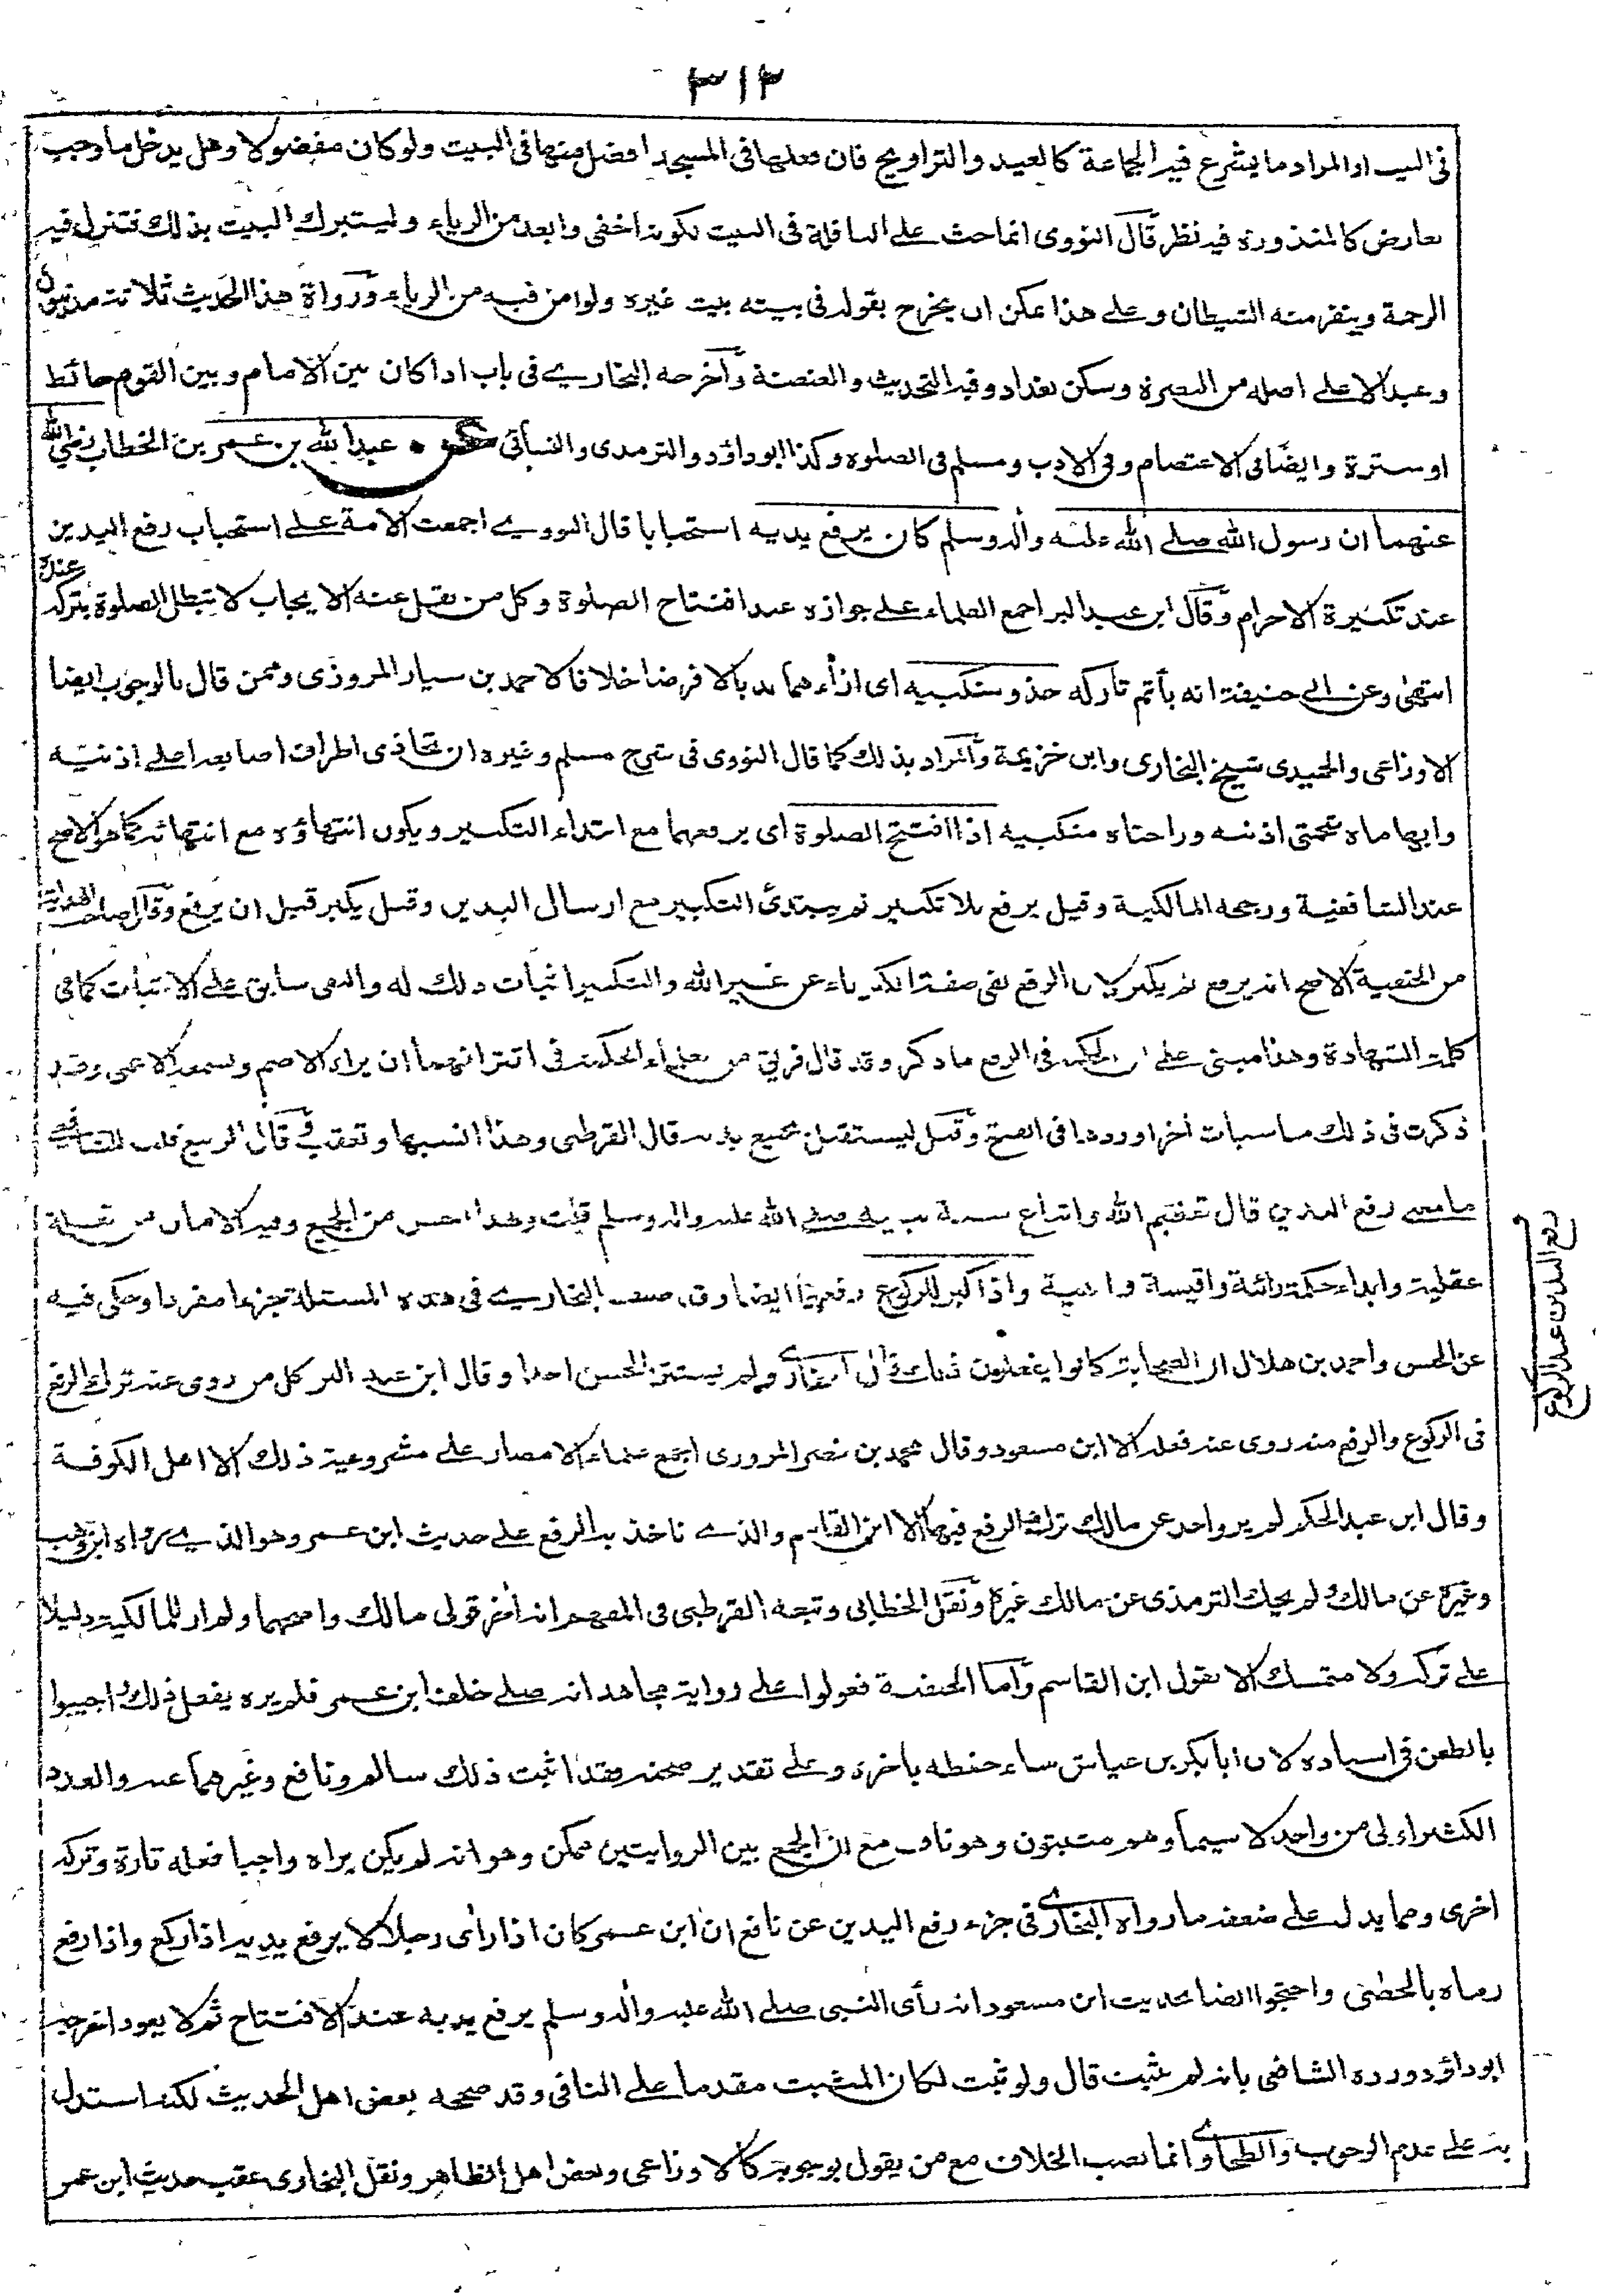 ٣١٢
فى البيت او المراد ما يشرع فيه الجماعة كالعيد والتراويح فان فعلها فى المسجد افضل منها فى البيت ولو كان مفضولا وهل يدخل ما وجب
بعارض كالمنذورة فيه نظر قال النووى انما حث على النافلة فى البيت لكونه اخفى وابعد من الرياء وليتبرك البيت بذلك فتنزل فيه
الرحمة وينفر منه الشيطان وعلى هذا يمكن ان يخرج بقوله فى بيته بيت غيره ولو امن فيه من الرياء ورواة هذا الحديث ثلاثة مدنيون
وعبد الاعلى اصله من البصرة وسكن بغداد وفيه التحديث والعنعنة واخرجه البخارى فى باب اذا كان بين الامام وبين القوم حائط
او سترة وايضا فى الاعتصام وفى الادب ومسلم فى الصلوة وكذا ابو داؤد والترمذى والنسائى عبد الله بن عمر بن الخطاب رضى الله
عنهما ان رسول الله صلى الله عليه وآله وسلم كان يرفع يديه استحبابا قال النووى اجمعت الامة على استحباب رفع اليدين
عند تكبيرة الاحرام وقال ابن عبد البر اجمع العلماء على جوازه عند افتتاح الصلوة وكل من نقل عنه الايجاب لا تبطل الصلوة بتركه عنده
انتهى وعن ابى حنيفة انه يأثم تاركه حذو منكبيه اى ازاءهما ندبا لا فرضا خلافا لاحمد بن سيار المروزى وممن قال بالوجوب ايضا
الاوزاعى والحميدى شيخ البخارى وابن خزيمة والمراد بذلك كما قال النووى فى شرح مسلم وغيره ان تحاذى اطراف اصابعه اعلى اذنيه
وابهاماه شحمتى اذنيه وراحتاه منكبيه اذا افتتح الصلوة اى يرفعهما مع ابتداء التكبير ويكون انتهاؤه مع انتهائه كما هو الاصح
عند الشافعية ورجحه المالكية وقيل يرفع بلا تكبير ثم يبتدئ التكبير مع ارسال اليدين وقيل يكبر قبل ان يرفع وقال صاحب الهداية
من الحنفية الاصح انه يرفع ثم يكبر لان الرفع نفى صفة الكبرياء عن غير الله والتكبير اثبات ذلك له والنفى سابق على الاثبات كما فى
كلمة الشهادة وهذا مبنى على ان الحكمة فى الرفع ما ذكر وقد قال فريق من العلماء الحكمة فى اقترانهما ان يراه الاصم ويسمعه الاعمى وقد
ذكرت فى ذلك مناسبات اخر اوردها فى الفتح وقيل ليستقبل بجميع بدنه قال القرطبى وهذا انسبها وتعقب وقال الربيع قلت للشافعى
ما معنى رفع اليدين قال تعظيم الله واتباع سنة نبيه صلى الله عليه وآله وسلم قلت وهذا احسن من الجميع وفيه الامان من
عقلية وابداء حكمة رائقة واقيسة واهية واذا كبر للركوع رفعهما ايضا وقد صنف البخارى فى هذه المسئلة جزءا مفردا وحكى فيه
عن الحسن واحمد بن هلال ان الصحابة كانوا يفعلون ذلك قال البخارى ولم يستثن الحسن احدا وقال ابن عبد البر كل من روى عنه ترك الرفع
فى الركوع والرفع منه روى عنه فعله الا ابن مسعود وقال محمد بن نصر المروزى اجمع علماء الامصار على مشروعية ذلك الا اهل الكوفة
وقال ابن عبد الحكم لم يرو احد عن مالك ترك الرفع فيهما الا ابن القاسم والذى ناخذ به الرفع على حديث ابن عمر وهو الذى رواه ابن وهب
وغيره عن مالك ولم يحك الترمذى عن مالك غيره ونقل الخطابى وتبعه القرطبى فى المفهم انه آخر قولى مالك واصحهما ولم ار للمالكية دليلا
على تركه ولا متمسك الا بقول ابن القاسم واما الحنفية فعولوا على رواية مجاهد انه صلى خلف ابن عمر فلم يره يفعل ذلك واجيبوا
بالطعن فى اسناده لان ابا بكر بن عياش ساء حفظه باخره وعلى تقدير صحته فقد اثبت ذلك سالم ونافع وغيرهما عنه والعدد
الكثير اولى من واحد لا سيما وهم مثبتون وهو ناف مع ان الجمع بين الروايتين ممكن وهو انه لم يكن يراه واجبا فعله تارة وتركه
اخرى ومما يدل على ضعفه ما رواه البخارى فى جزء رفع اليدين عن نافع ان ابن عمر كان اذا رأى رجلا لا يرفع يديه اذا ركع واذا رفع
رماه بالحصى واحتجوا ايضا بحديث ابن مسعود انه رأى النبى صلى الله عليه وآله وسلم يرفع يديه عند الافتتاح ثم لا يعود اخرجه
ابو داؤد ورده الشافعى بانه لم يثبت قال ولو ثبت لكان المثبت مقدما على النافى وقد صححه بعض اهل الحديث لكنه استدل
به على عدم الوجوب والطحاوى انما نصب الخلاف مع من يقول بوجوبه كالاوزاعى وبعض اهل الظاهر ونقل البخارى عقب حديث ابن عمر
رفع اليدين عند الركوع